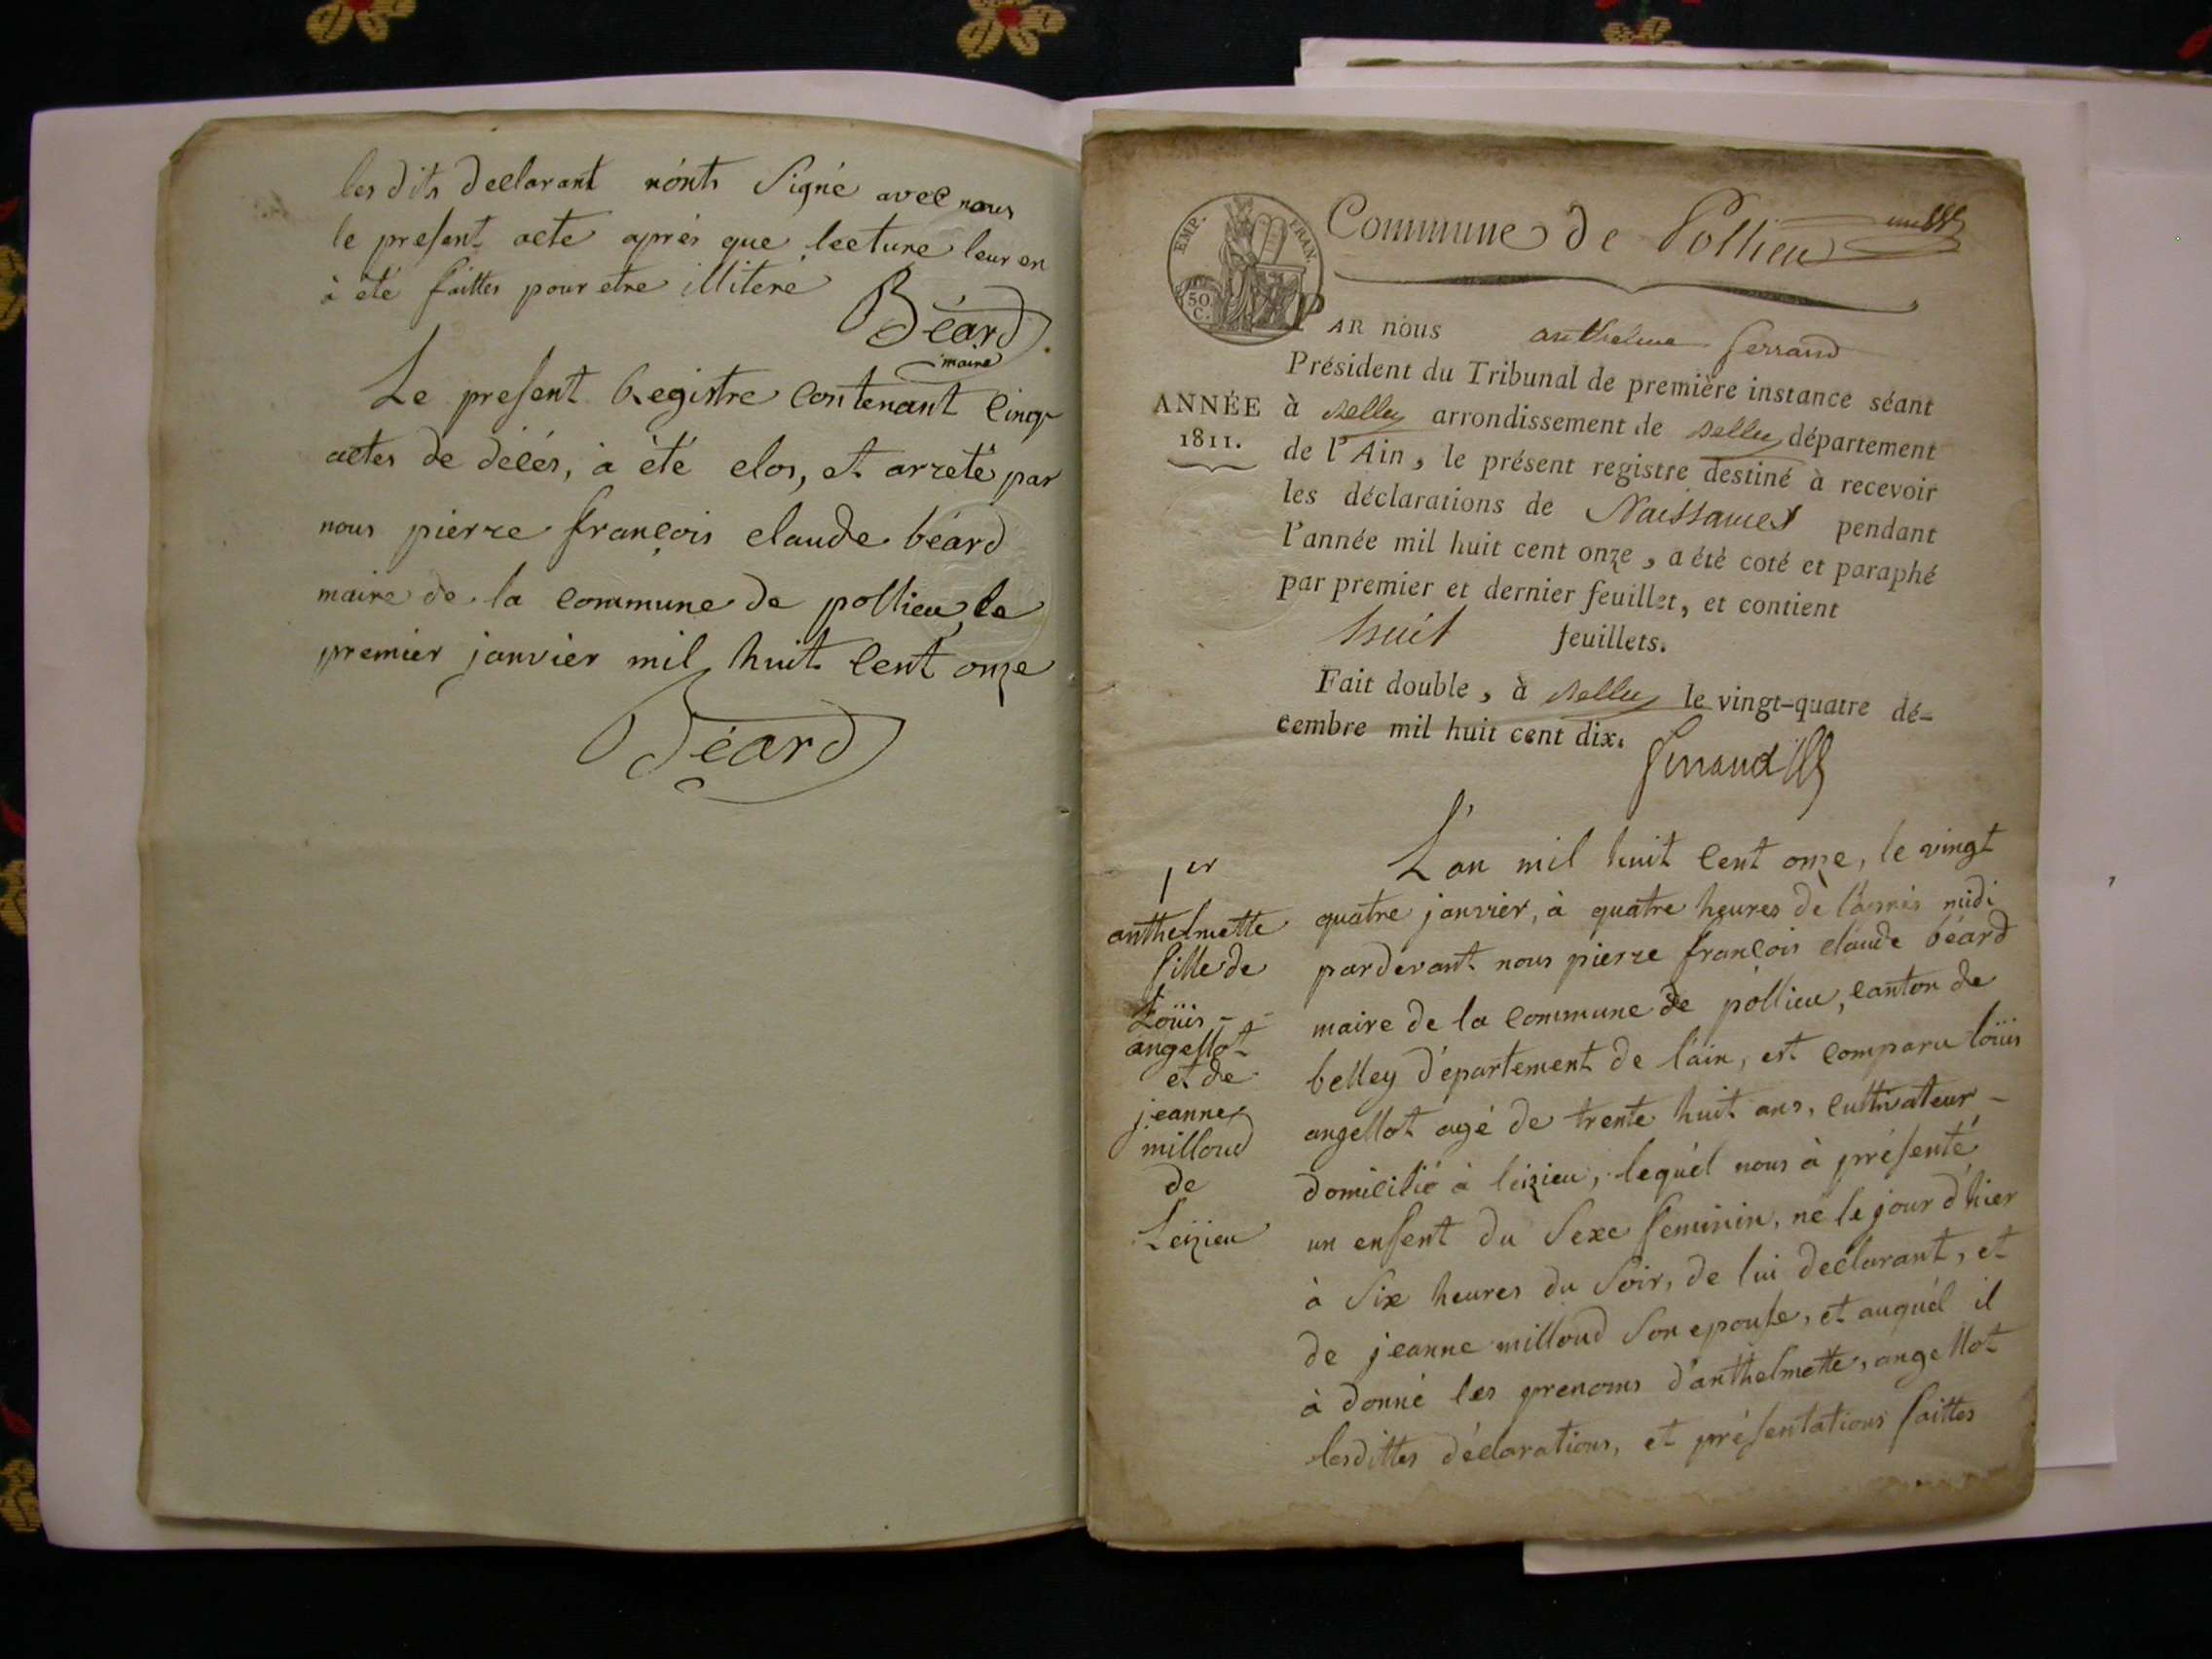 les dits declarant n'ont Signé avec nous
le present acte après que lecture leur en
à été faittes pour etre illitere
Béard
maire
Le present Registre contenant cinq
actes de décés, à été clos, et arreté par
nous pierre françois claude béard
maire de la commune de pollieu, le
premier janvier mil huit cent onze
Béard
EMP. FRAN.
50
C.
Commune de Pollieu
PAR nous anthelme ferrand
Président du Tribunal de première instance séant
ANNÉE
1811.
à Belley arrondissement de Belley département
de l'Ain, le présent registre destiné à recevoir
les déclarations de Naissances pendant
l'année mil huit cent onze, a été coté et paraphé
par premier et dernier feuillet, et contient
huit feuillets.
Fait double, à Belley le vingt-quatre dé-
cembre mil huit cent dix.
ferrand
1er
anthelmette
fille de
Loüis -
angellot
et de
jeanne
milloud
de
Leizieu
L'an mil huit cent onze, le vingt
quatre janvier, à quatre heures de l'après midi
pardevant nous pierre françois claude béard
maire de la commune de pollieu, canton de
belley département de l'ain, est comparu loüis
angellot agé de trente huit ans, cultivateur -
domicilié à leizieu, lequél nous à présenté
un enfent du Sexe feminin, né le jour d'hier
à Six heures du Soir, de lui déclarant, et
de jeanne milloud Son epouse, et auquél il
à donné les prenoms d'anthelmette, angellot
lesdittes déclarations, et présentations faittes